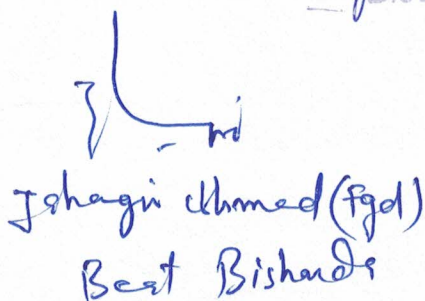 Jahagir Ahmed (Fgd)
Beat Bisharda